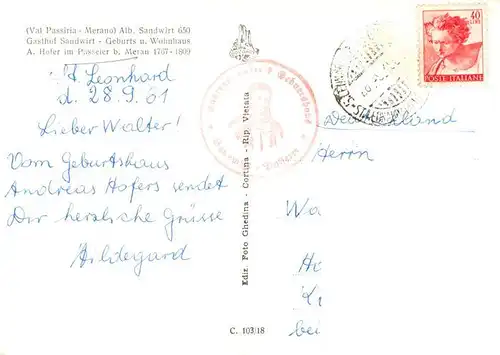 (Val Passiria - Merano) Alb. Sandwirt 650
Gasthof Sandwirt - Geburts u. Wohnhaus
A. Hofer im Passeier b. Meran 1767-1809
St. Leonhard
d. 28.9.61
Lieber Walter!
Vom Geburtshaus
Andreas Hofers sendet
Dir herzliche Grüsse
Hildegard
Ediz. Foto Ghedina - Cortina - Rip. Vietata
C. 103/18
40
LIRE
POSTE ITALIANE
Deutschland
Herrn
Wa
Ho
bei